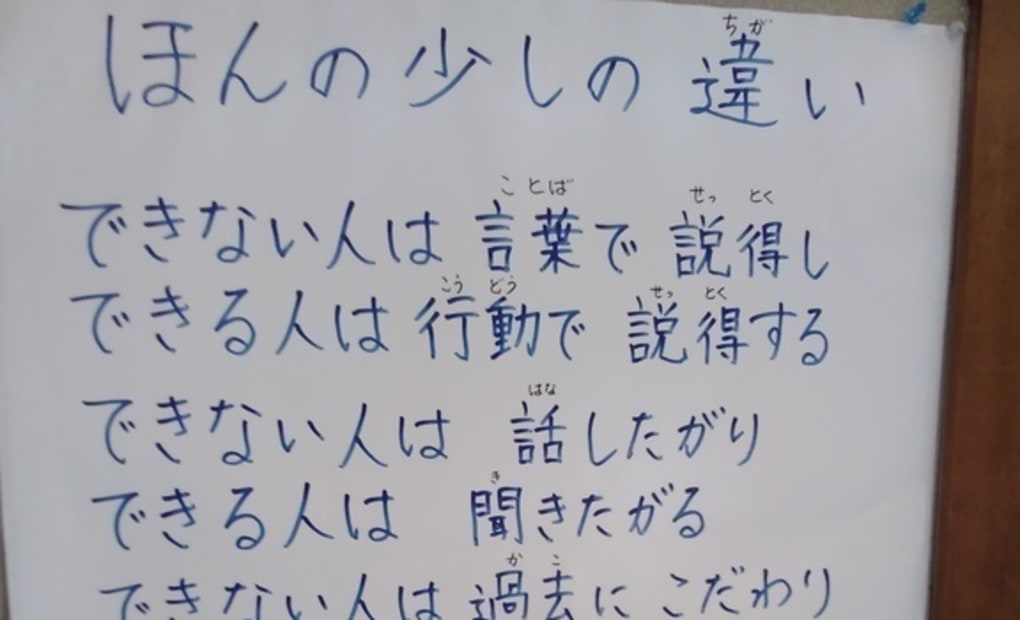 ほんの少しの違い
できない人は言葉で説得し
できる人は行動で説得する
できない人は話したがり
できる人は聞きたがる
できない人は過去にこだわり